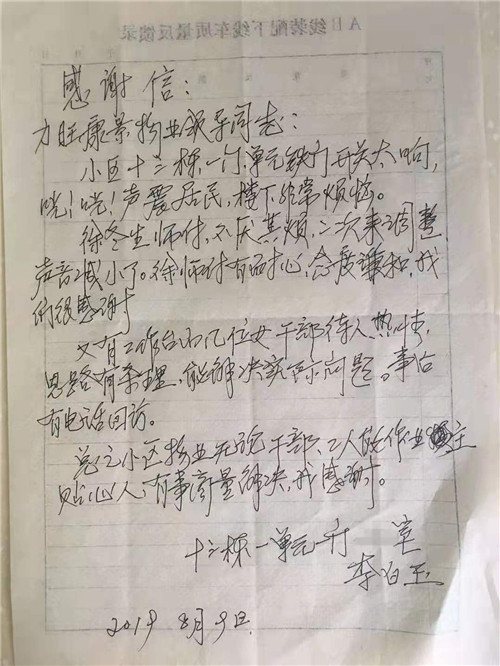 AB线装配下线车质量反馈录
感谢信：
力旺康景物业领导同志：
小区十二栋一门单元铁门开关太响，
咣！咣！声震居民，楼下非常烦恼。
徐冬生师付，不厌其烦，二次来调整
声音减小了。徐师付有耐心，态度谦和，我
们很感谢
又有工作台的几位女干部待人热情，
思路有条理，能解决实际问题。事后
有电话回访。
总之小区物业无论干部、工人能作业主
贴心人，有事商量解决，我感谢。
十二栋一单元一门 室
李白玉
2019 8月9日